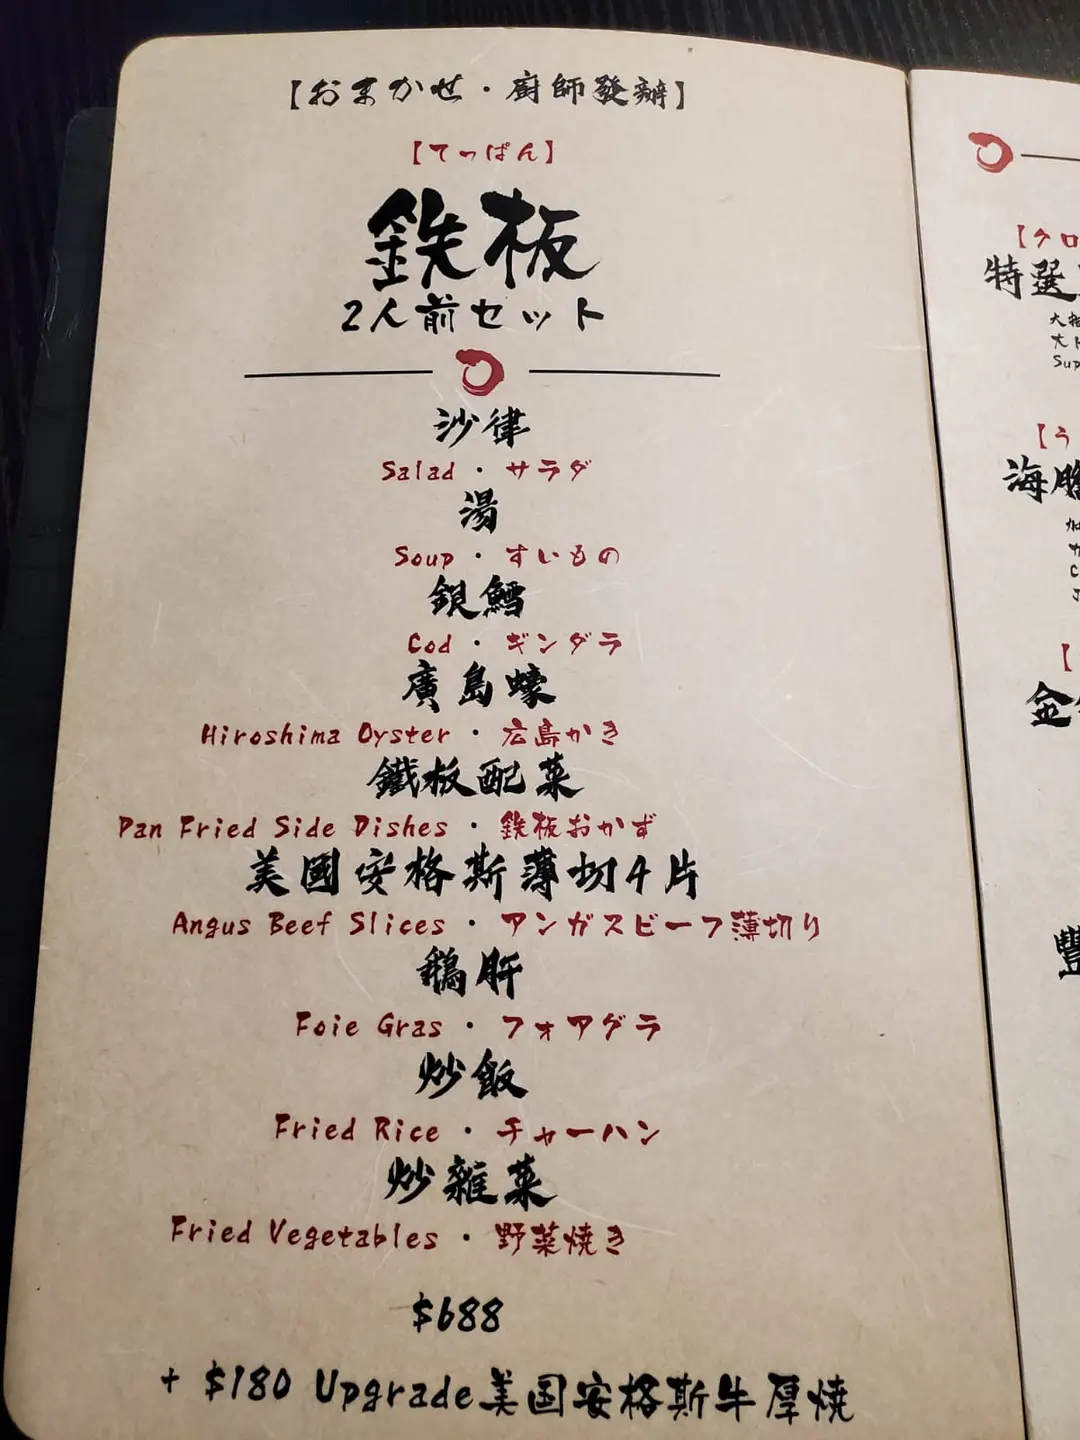 【おまかせ・廚師發辦】
【てっぱん】
鉄板
2人前セット
沙律
Salad・サラダ
湯
Soup・すいもの
銀鱈
Cod・ギンダラ
廣島蠔
Hiroshima Oyster・広島かき
鐵板配菜
Pan Fried Side Dishes・鉄板おかず
美國安格斯薄切4片
Angus Beef Slices・アンガスビーフ薄切り
鵝肝
Foie Gras・フォアグラ
炒飯
Fried Rice・チャーハン
炒雜菜
Fried Vegetables・野菜焼き
$688
+ $180 Upgrade美国安格斯牛厚焼
特選
海膽